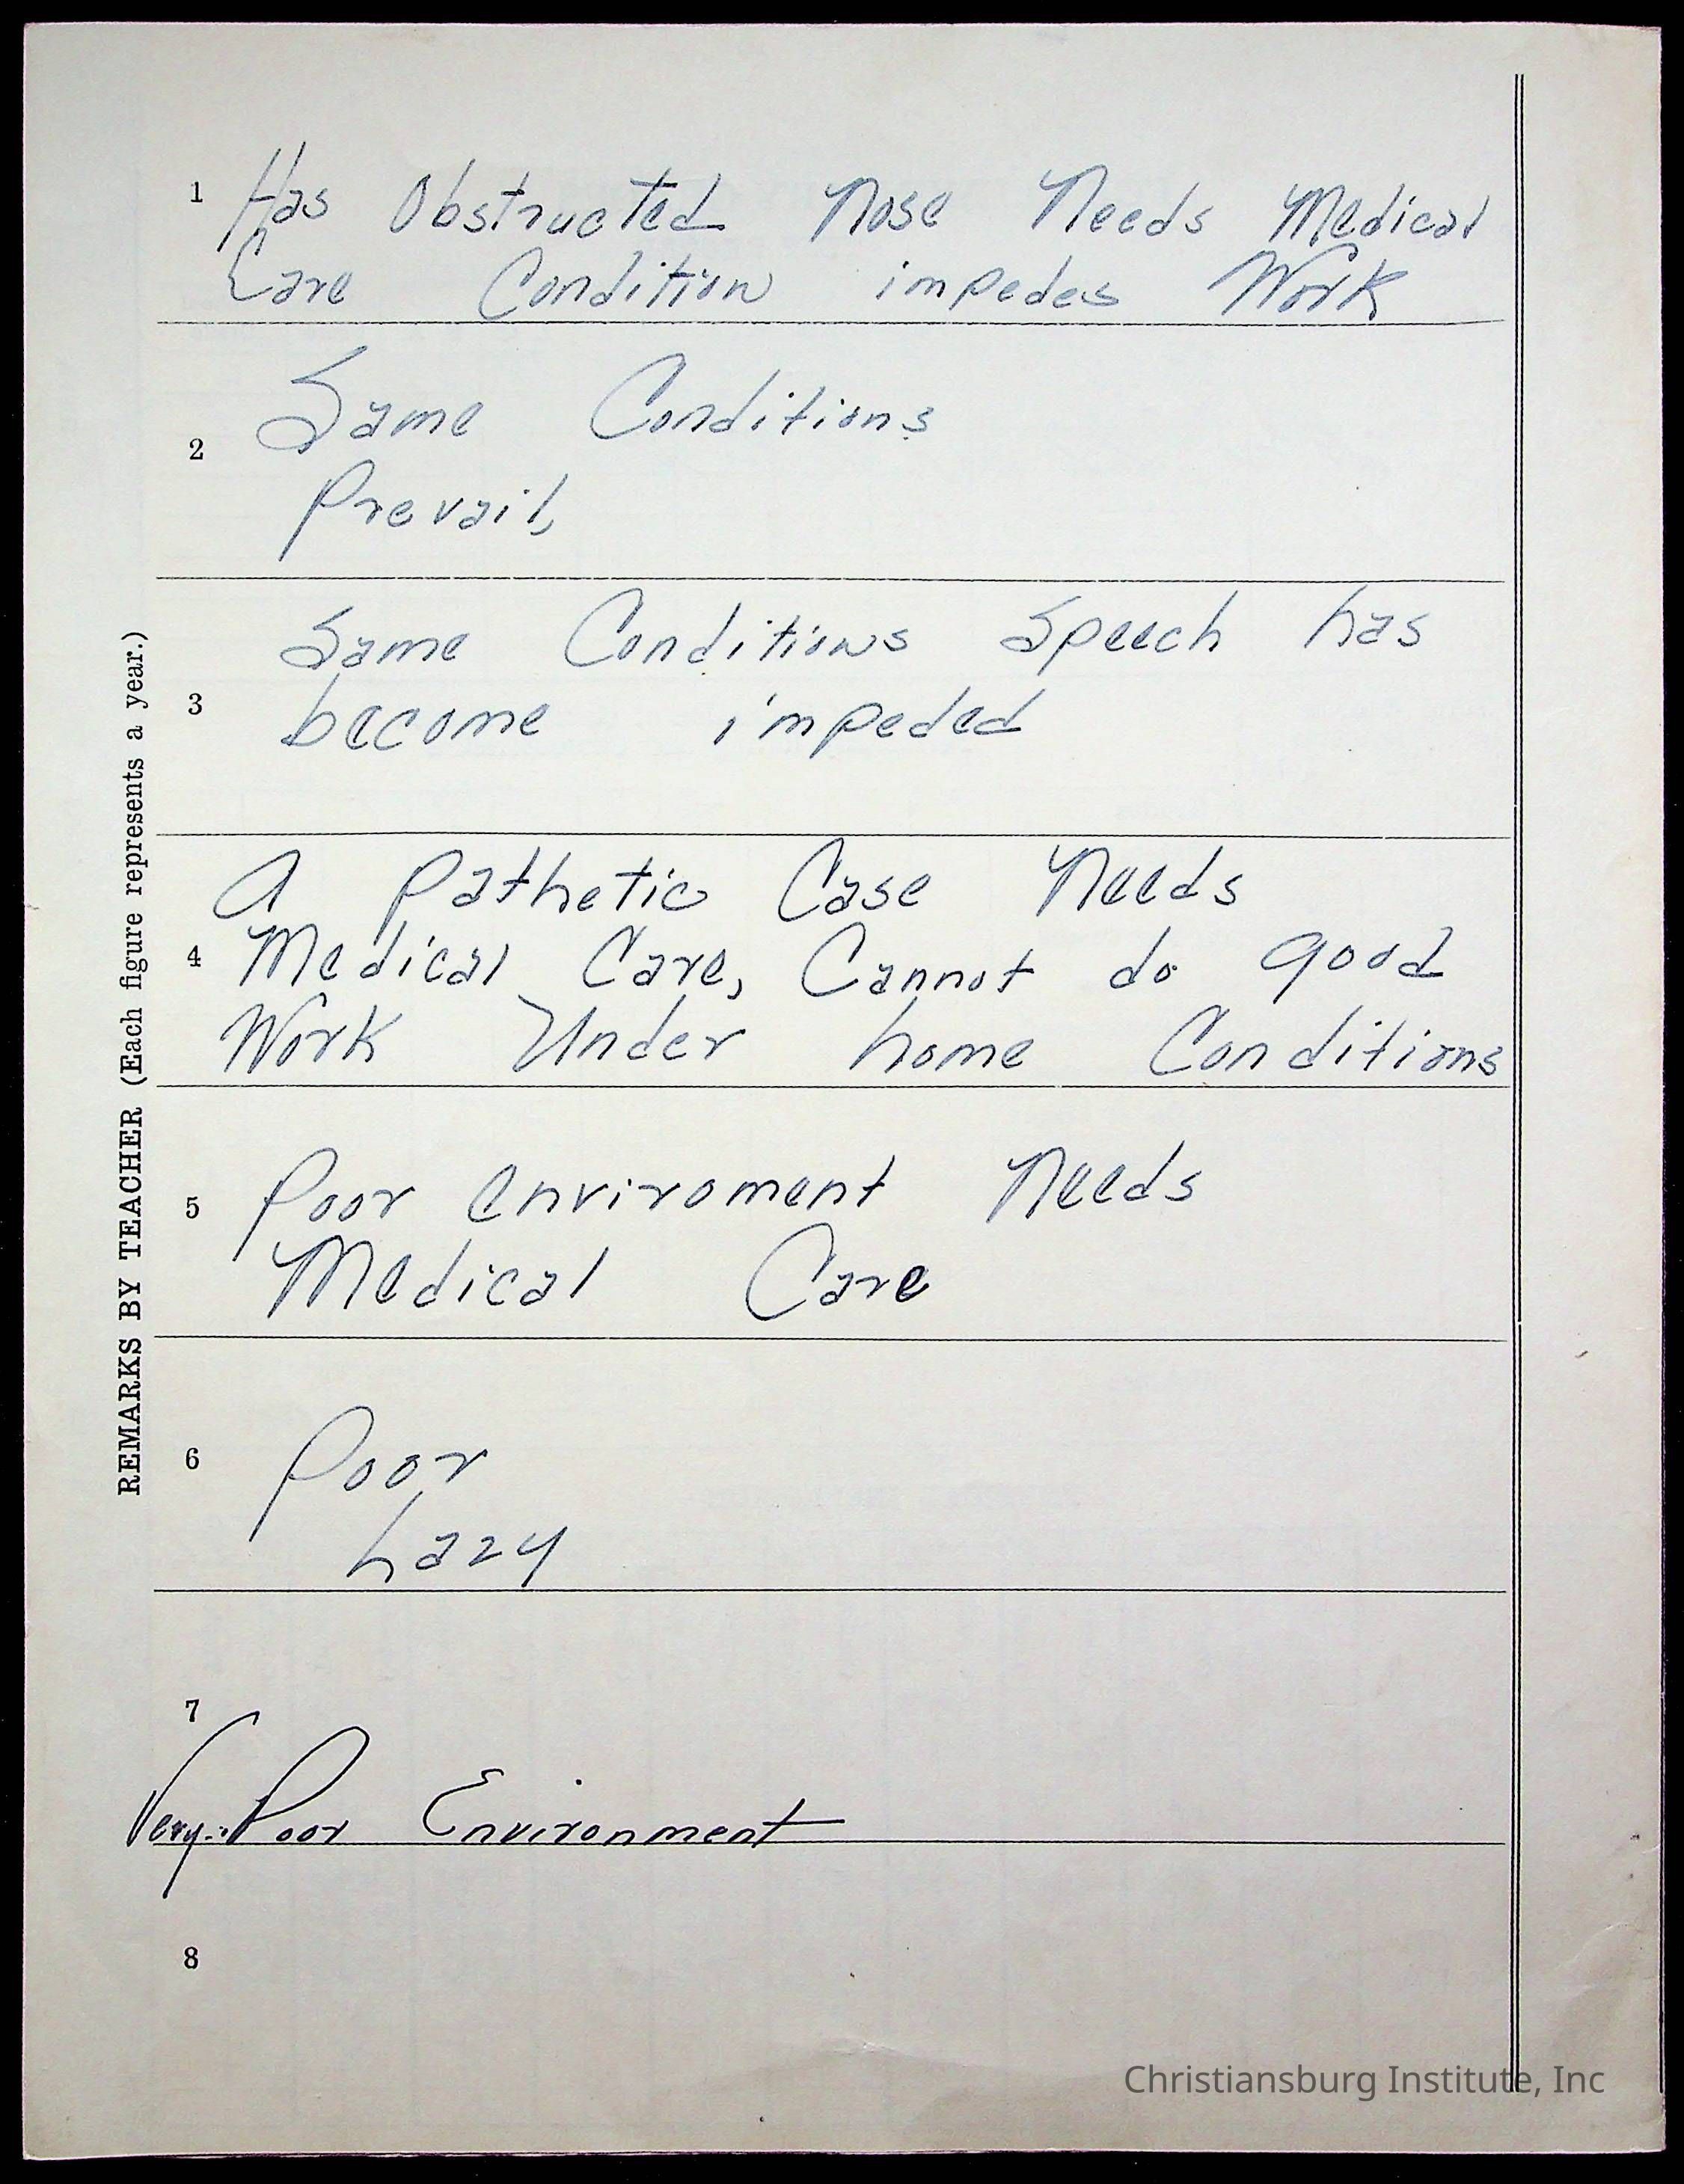 REMARKS BY TEACHER (Each figure represents a year.)
1 Has Obstructed Nose Needs Medical
Care Condition impedes Work
2 Same Conditions
Prevail,
3 Same Conditions Speech has
become impeded
A Pathetic Case Needs
4 Medical Care, Cannot do good
Work Under home Conditions
5 Poor enviroment Needs
Medical Care
6 Poor
Lazy
7
Very Poor Environment
8
Christiansburg Institute, Inc